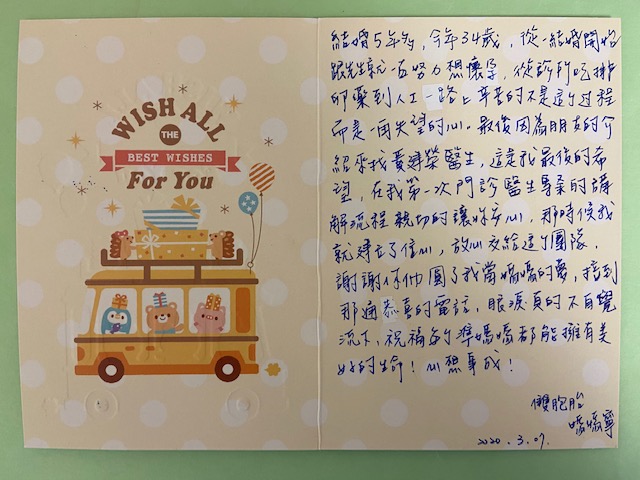 WISH ALL
THE
BEST WISHES
For You
結婚5年多,今年34歲,從結婚開始
跟先生就一直努力想懷孕,從診所吃排
卵藥到人工一路上辛苦的不是這個過程
而是一再失望的心。最後因為朋友的介
紹來找黃建榮醫生,這是我最後的希
望,在我第一次門診醫生專業的講
解流程親切的讓妳安心,那時候我
就建立了信心,放心交給這個團隊。
謝謝你們圓了我當媽媽的夢,接到
那通恭喜的電話,眼淚真的不自覺
流下,祝福每個準媽媽都能擁有美
好的生命!心想事成!
雙胞胎
媽媽寧
2020.3.07.